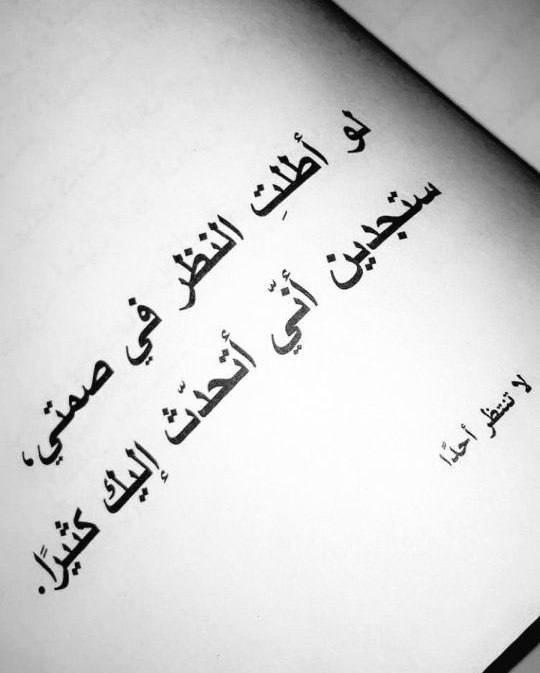 لو أطلتِ النظر في صمتي،
ستجدين أنّي أتحدّث إليك كثيرًا.
لا تنتظر أحدًا